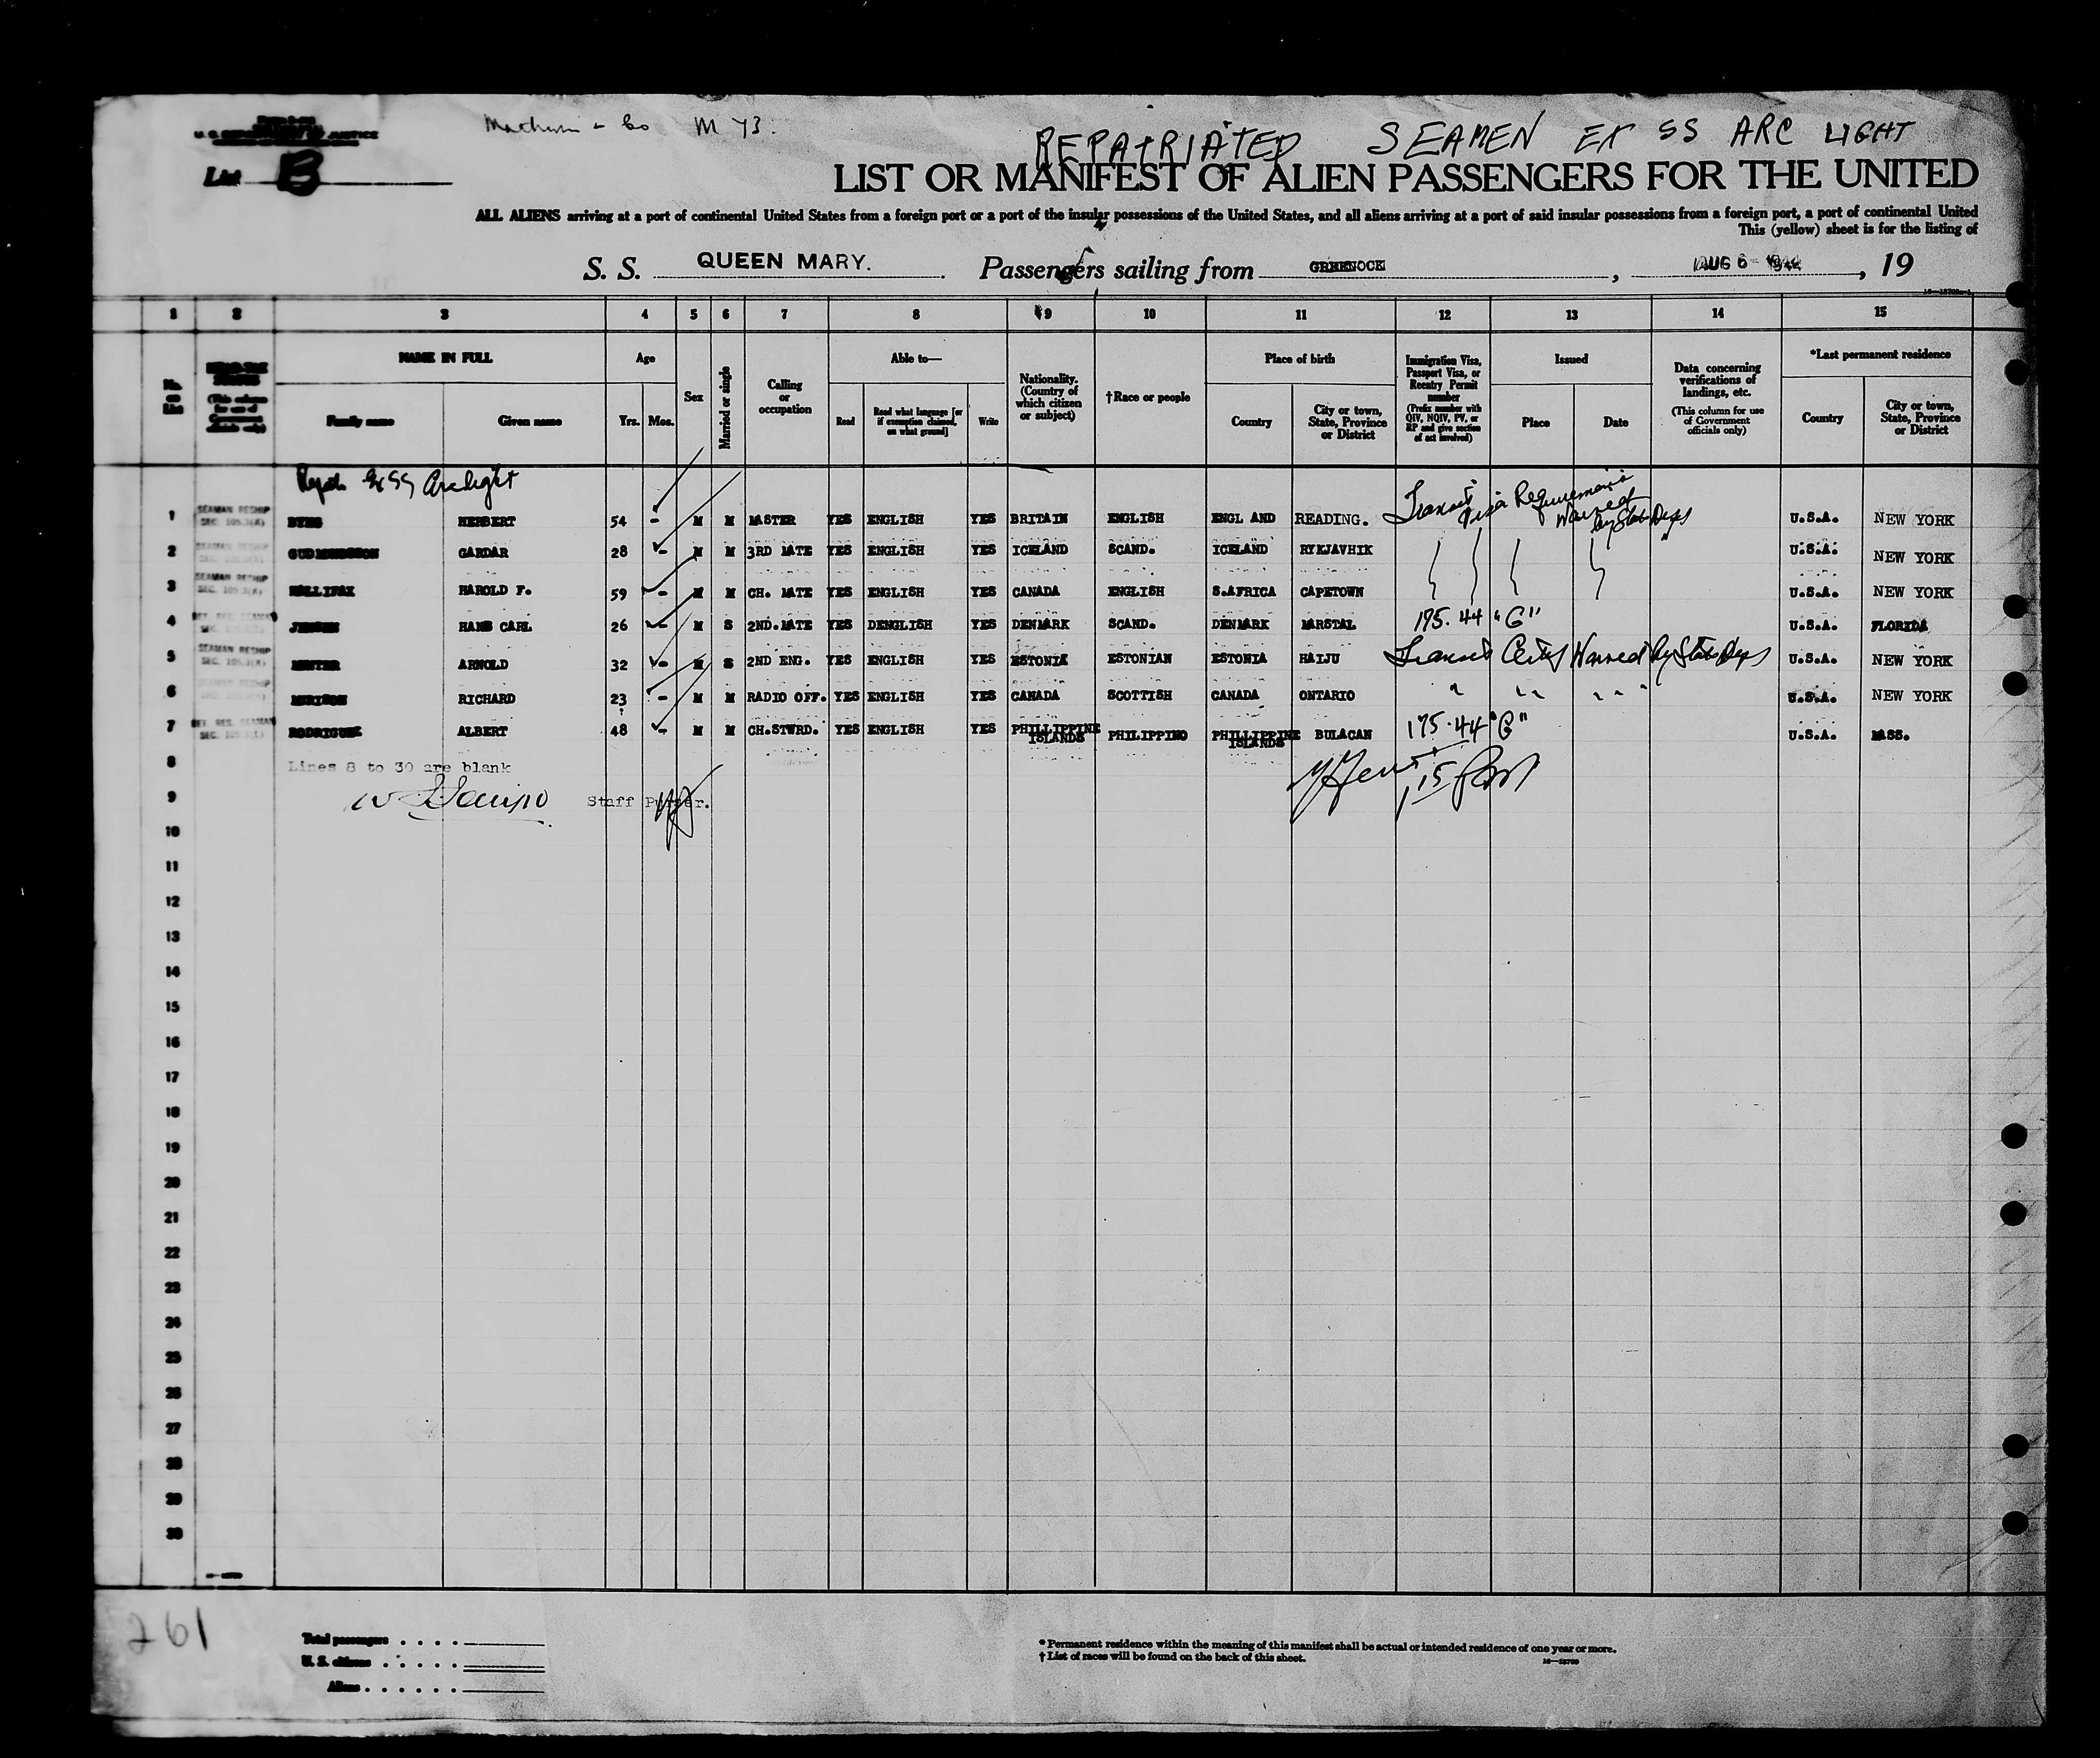 M 43.
REPATRIATED SEAMEN EX SS ARC LIGHT
List B
LIST OR MANIFEST OF ALIEN PASSENGERS FOR THE UNITED
ALL ALIENS arriving at a port of continental United States from a foreign port or a port of the insular possessions of the United States, and all aliens arriving at a port of said insular possessions from a foreign port, a port of continental United
This (yellow) sheet is for the listing of
S. S. QUEEN MARY. Passengers sailing from GREENOCK, AUG 6 1944, 19
1 2 3 4 5 6 7 8 9 10 11 12 13 14 15
No. on List
NAME IN FULL
Family name Given name
Age
Yrs. Mos.
Sex
Married or single
Calling or occupation
Able to—
Read Read what language [or if exemption claimed, on what ground] Write
Nationality. (Country of which citizen or subject)
†Race or people
Place of birth
Country City or town, State, Province or District
Immigration Visa, Passport Visa, or Reentry Permit number
(Prefix number with QIV, NQIV, PV, or RP and give section of act involved)
Issued
Place Date
Data concerning verifications of landings, etc.
(This column for use of Government officials only)
*Last permanent residence
Country City or town, State, Province or District
Ex SS Arclight
1 SEAMAN RESHIP HERBERT 54 - M M MASTER YES ENGLISH YES BRITAIN ENGLISH ENGL AND READING. Transit Visa Requirements Waived by State Dept U.S.A. NEW YORK
2 SEAMAN RESHIP GUDMUNDSSON GARDAR 28 - M M 3RD MATE YES ENGLISH YES ICELAND SCAND. ICELAND RYKJAVHIK U.S.A. NEW YORK
3 SEAMAN RESHIP HALLIFAX HAROLD F. 59 - M M CH. MATE YES ENGLISH YES CANADA ENGLISH S.AFRICA CAPETOWN U.S.A. NEW YORK
4 JENSEN HANS CARL 26 - M S 2ND.MATE YES DENGLISH YES DENMARK SCAND. DENMARK MARSTAL 175.44 "G" U.S.A. FLORIDA
5 SEAMAN RESHIP ARNOLD 32 - M S 2ND ENG. YES ENGLISH YES ESTONIA ESTONIAN ESTONIA HAIJU Transit Waived by State Dept U.S.A. NEW YORK
6 SEAMAN RESHIP RICHARD 23 - M M RADIO OFF. YES ENGLISH YES CANADA SCOTTISH CANADA ONTARIO " " " U.S.A. NEW YORK
7 RES. SEAMAN RODRIGUEZ ALBERT 48 - M M CH.STWRD. YES ENGLISH YES PHILLIPPINE ISLANDS PHILIPPINO PHILLIPPINE ISLANDS BULACAN 175.44 "G" U.S.A. MASS.
8 Lines 8 to 30 are blank
9 Staff Purser.
10
11
12
13
14
15
16
17
18
19
20
21
22
23
24
25
26
27
28
29
30
261
Total passengers
U. S. citizens
Aliens
* Permanent residence within the meaning of this manifest shall be actual or intended residence of one year or more.
† List of races will be found on the back of this sheet.